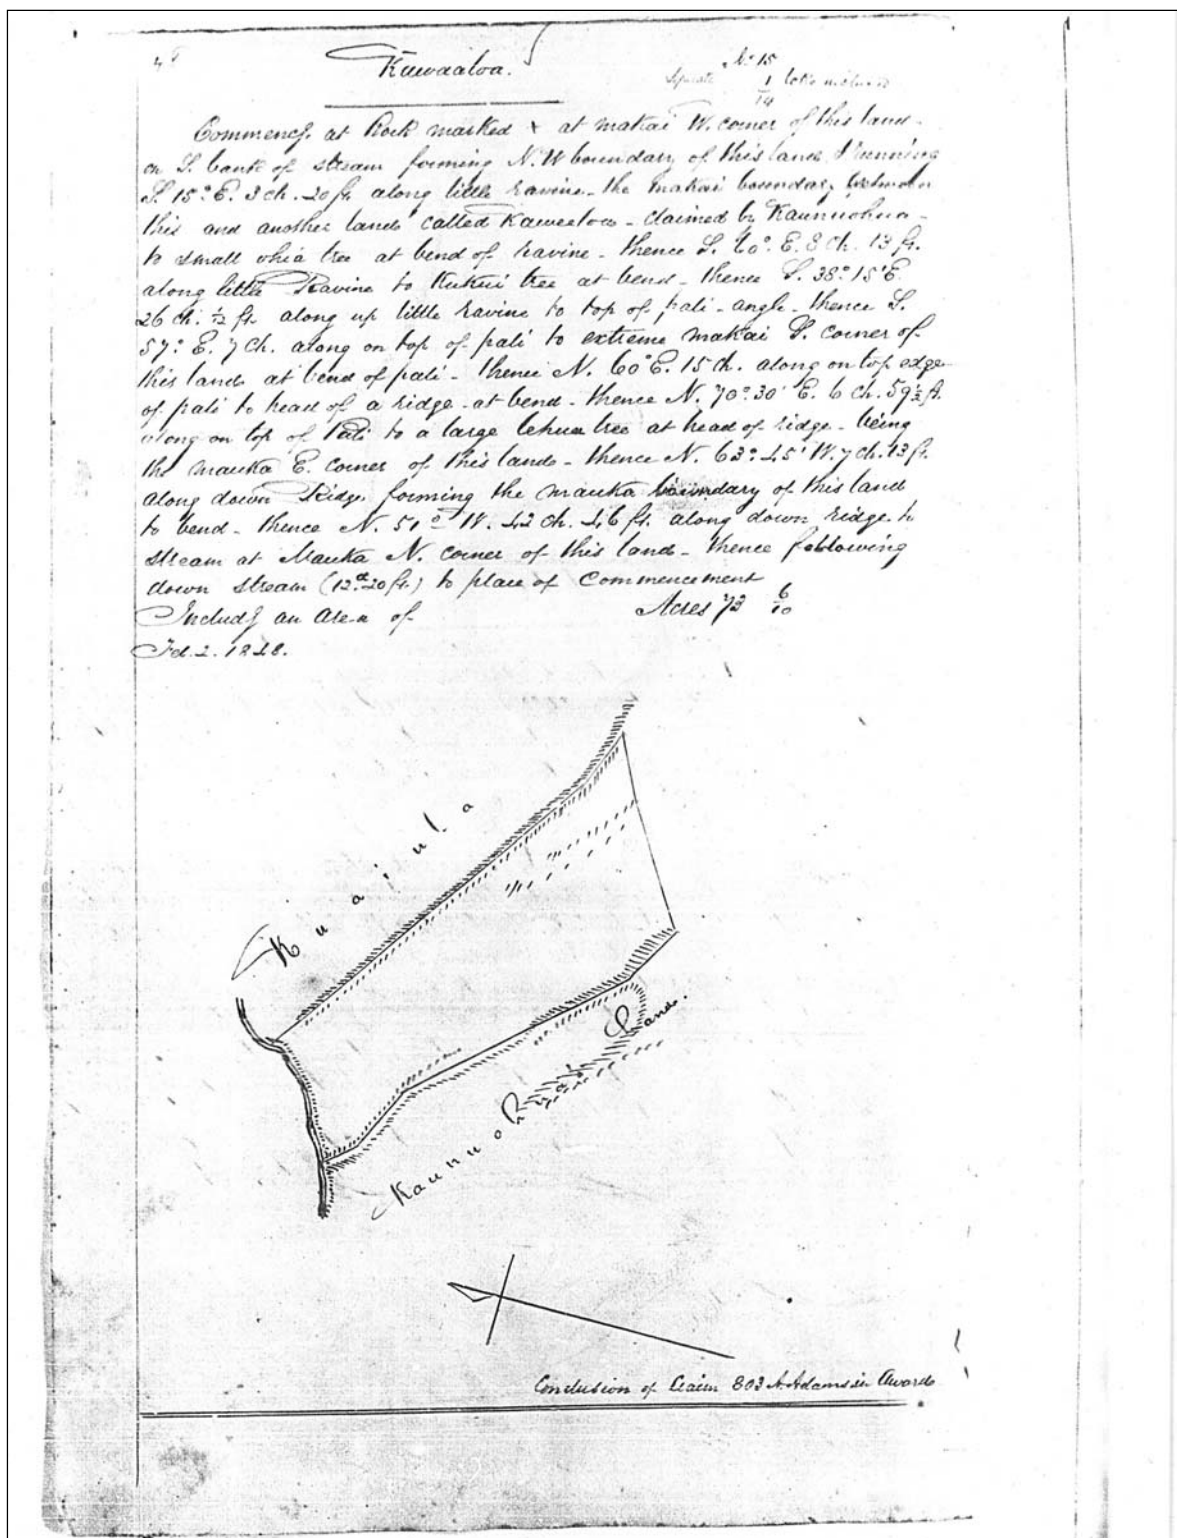 Kuwaaloa.
No 15
1/14
Commencg. at Rock marked x at makai W. corner of this land -
on S. bank of stream forming N.W boundary of this land & running
S. 15° E. 3 ch. 20 ft. along little ravine - the makai boundary between
this and another land called - claimed by
to small ohia tree at bend of ravine - thence S. 60° E. 8 ch. 13 ft.
along little Ravine to Kukui tree at bend - thence S. 38° 15' E
26 ch. ½ ft. along up little ravine to top of pali - angle - thence S.
57° E. 7 ch. along on top of pali to extreme makai S. corner of
this land at bend of pali - thence N. 60° E. 15 ch. along on top edge
of pali to head of a ridge - at bend - thence N. 70° 30' E. 6 ch. 59½ ft.
along on top of Pali to a large lehua tree at head of ridge - being
the mauka E. corner of this land - thence N. 63° 45' W. 7 ch. 13 ft.
along down Ridge forming the mauka boundary of this land
to bend - thence N. 51° W. 42 ch. 46 ft. along down ridge to
stream at Mauka N. corner of this land - thence following
down stream (12 ch 20 ft.) to place of Commencement
Includg an area of Acres 73 6/10
Feb. 2. 1848.
Land.
Conclusion of Claim 803 A. Adams in Awards